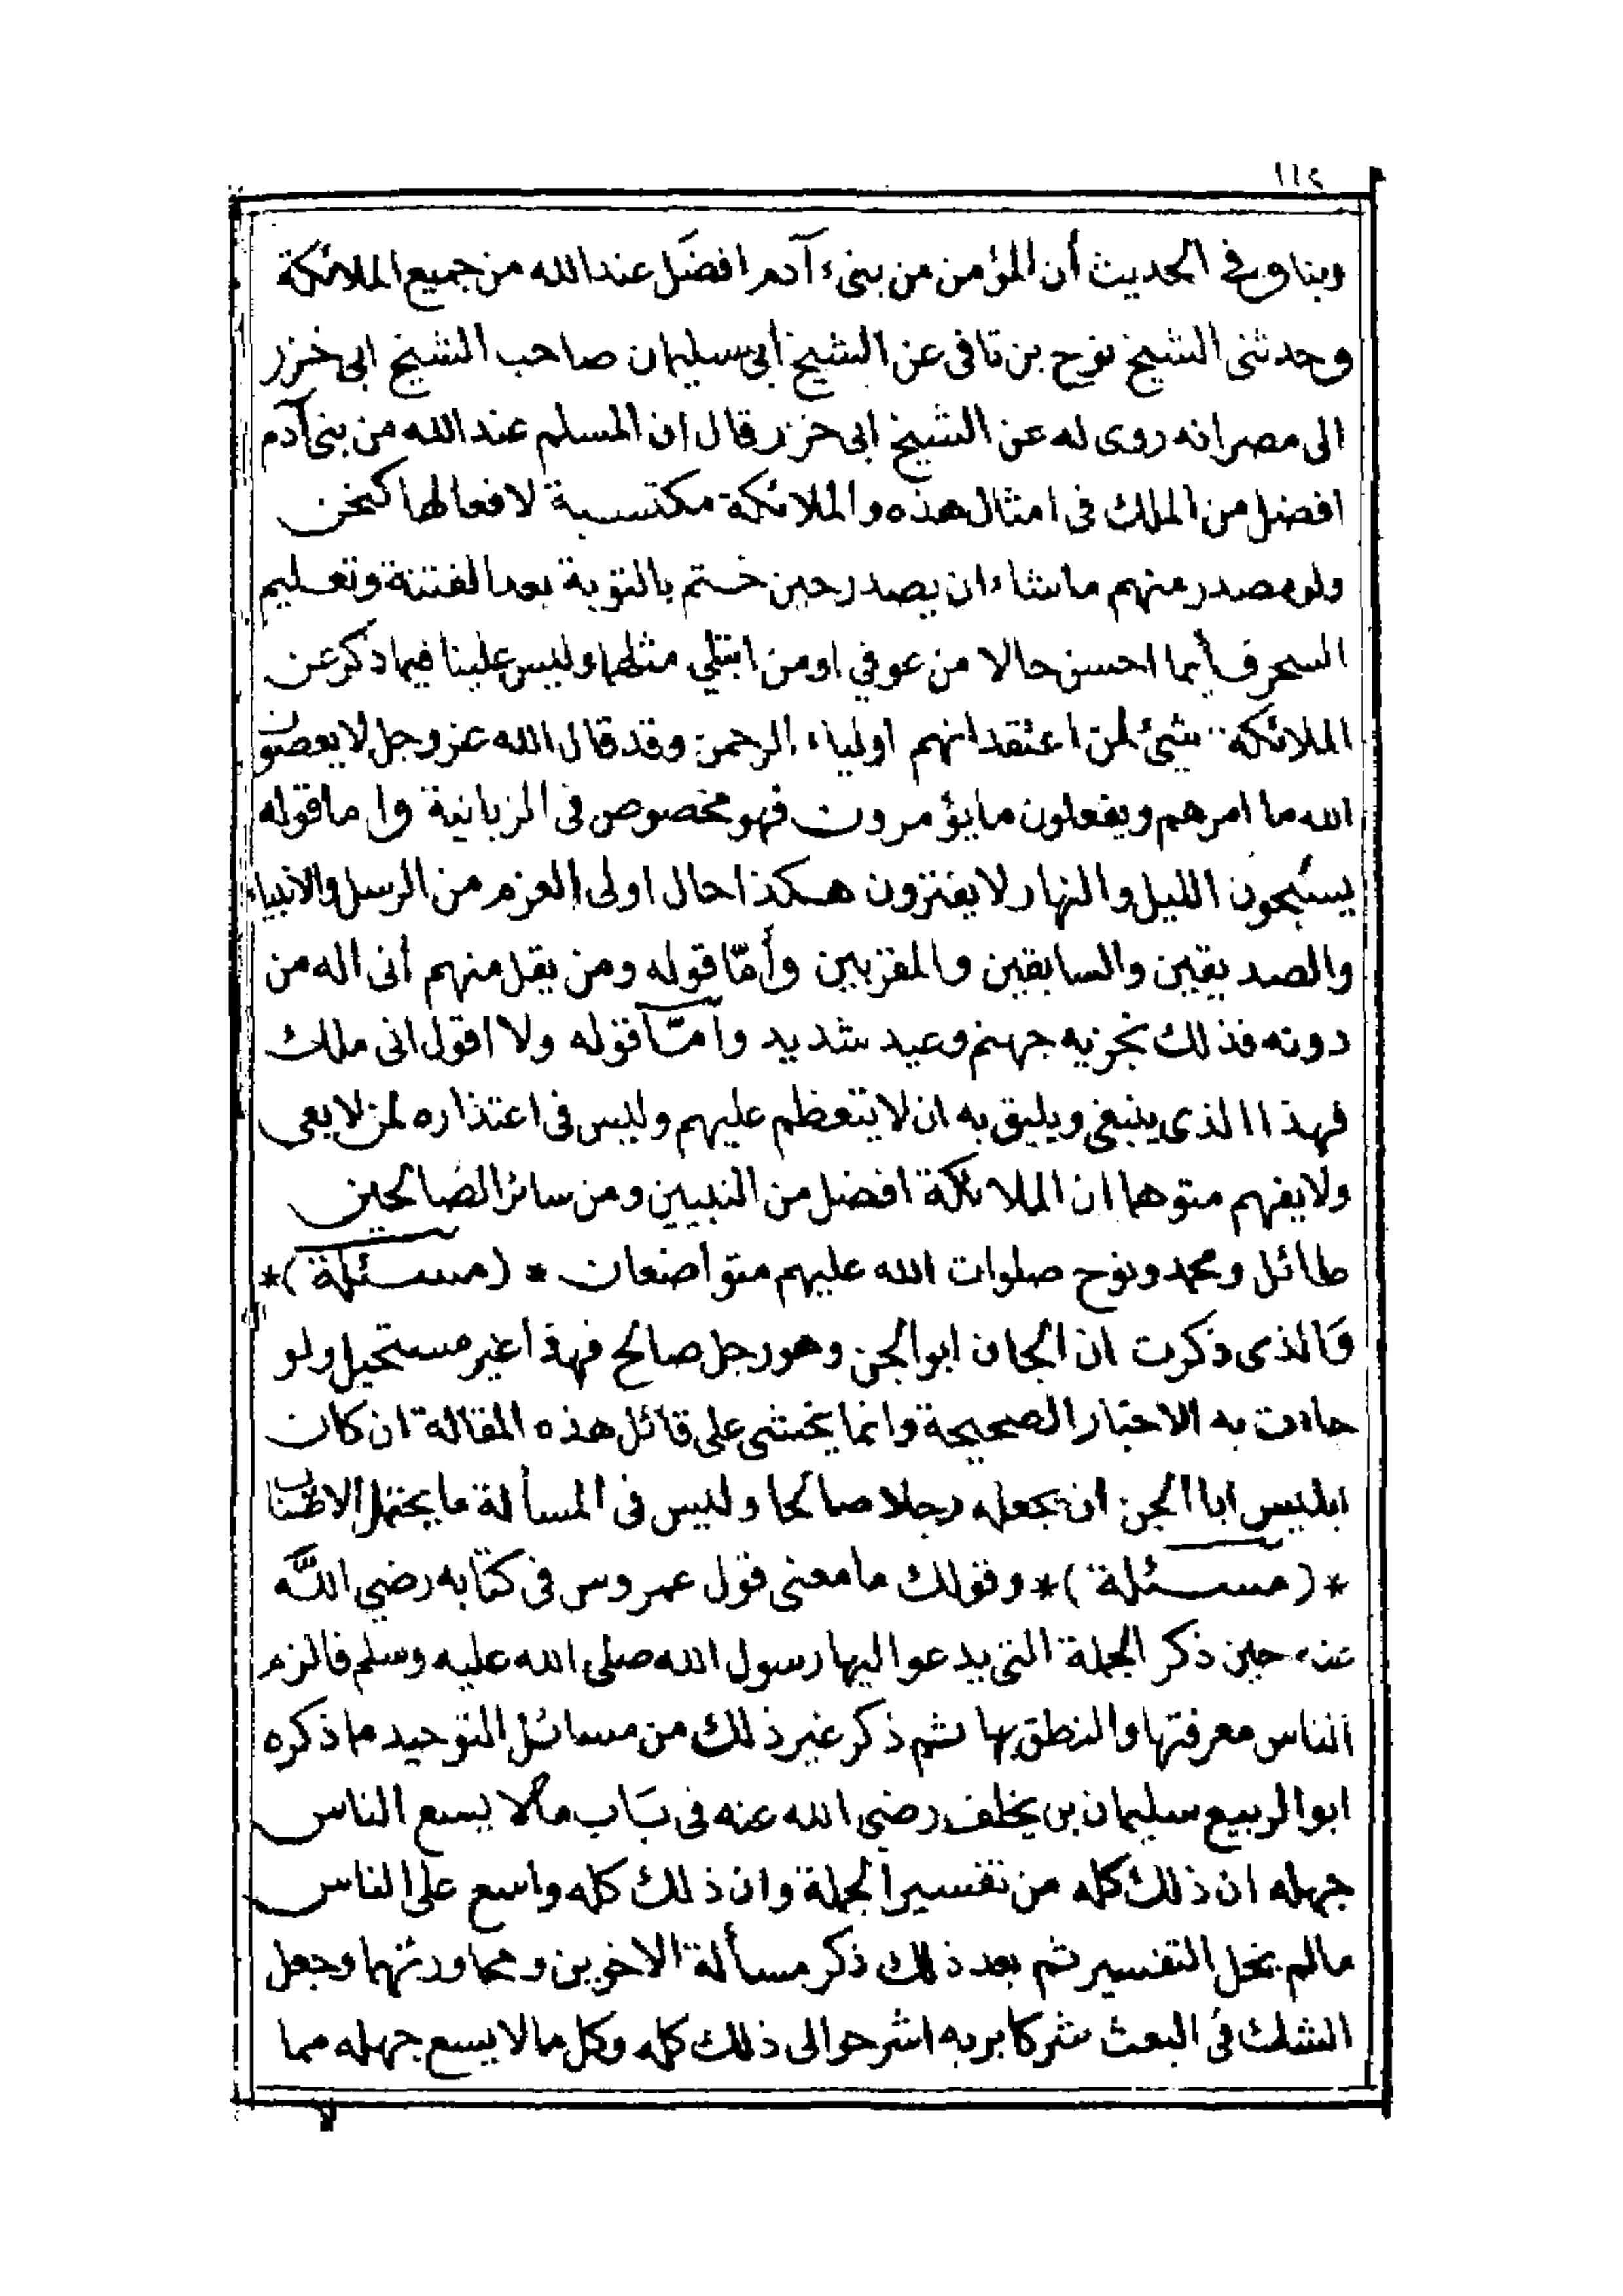 ١١٢
وبناو في الحديث أن المؤمن من بنىء آدم افضل عند الله من جميع الملائكة
وحدثنى الشيخ نوح بن تافى عن الشيخ أبى سليمان صاحب الشيخ ابى خزر
الى مصر انه روى له عن الشيخ ابى خزر قال ان المسلم عند الله من بنى آدم
افضل من الملك فى امثال هذه والملائكة مكتسبة لافعالها كنحن
ولو صدر منهم ما شاء ان يصدر حين ختم بالتوبة بعد الفتنة وتعليم
السحر فأيما احسن حالا من عوفي او من ابتلي مثلهما وليس علينا فيما ذكر عن
الملائكة شيئ لمن اعتقد انهم اولياء الرحمن وقد قال الله عز وجل لا يعصون
الله ما امرهم ويفعلون ما يؤمرون فهو مخصوص فى الزبانية واما قوله
يسبحون الليل والنهار لا يفترون هكذا حال اولى العزم من الرسل والانبياء
والصديقين والسابقين والمقربين وأمّا قوله ومن يقل منهم انى اله من
دونه فذلك نجزيه جهنم وعيد شديد وامّا قوله ولا اقول انى ملك
فهذا الذى ينبغى ويليق به ان لا يتعظم عليهم وليس فى اعتذاره لمن لا يعى
ولا يفهم متوهما ان الملائكة افضل من النبيين ومن سائر الصالحين
طائل ومحمد ونوح صلوات الله عليهم متواضعان * (مسئلة) *
فالذى ذكرت ان الجان ابو الجن وهو رجل صالح فهذا غير مستحيل ولو
جاءت به الاخبار الصحيحة وانما يخشى على قائل هذه المقالة ان كان
ابليس ابا الجن ان يجعله رجلا صالحا وليس فى المسألة ما يحتمل الاطناب
* (مسئلة) * وقولك ما معنى قول عمروس فى كتابه رضي اللّه
عنه حين ذكر الجملة التى يدعو اليها رسول الله صلى الله عليه وسلم فالزم
الناس معرفتها والنطق بها ثم ذكر غير ذلك من مسائل التوحيد ما ذكره
ابو الربيع سليمان بن يخلف رضي الله عنه فى باب ما لا يسع الناس
جهله ان ذلك كله من تفسير الجملة وان ذلك كله واسع على الناس
مالم يخل التفسير ثم بعد ذلك ذكر مسألة الاخوين ومحاورتهما وجعل
الشك فى البعث شركا بربه اشرحوالى ذلك كله وكل ما لا يسع جهله مما
لا